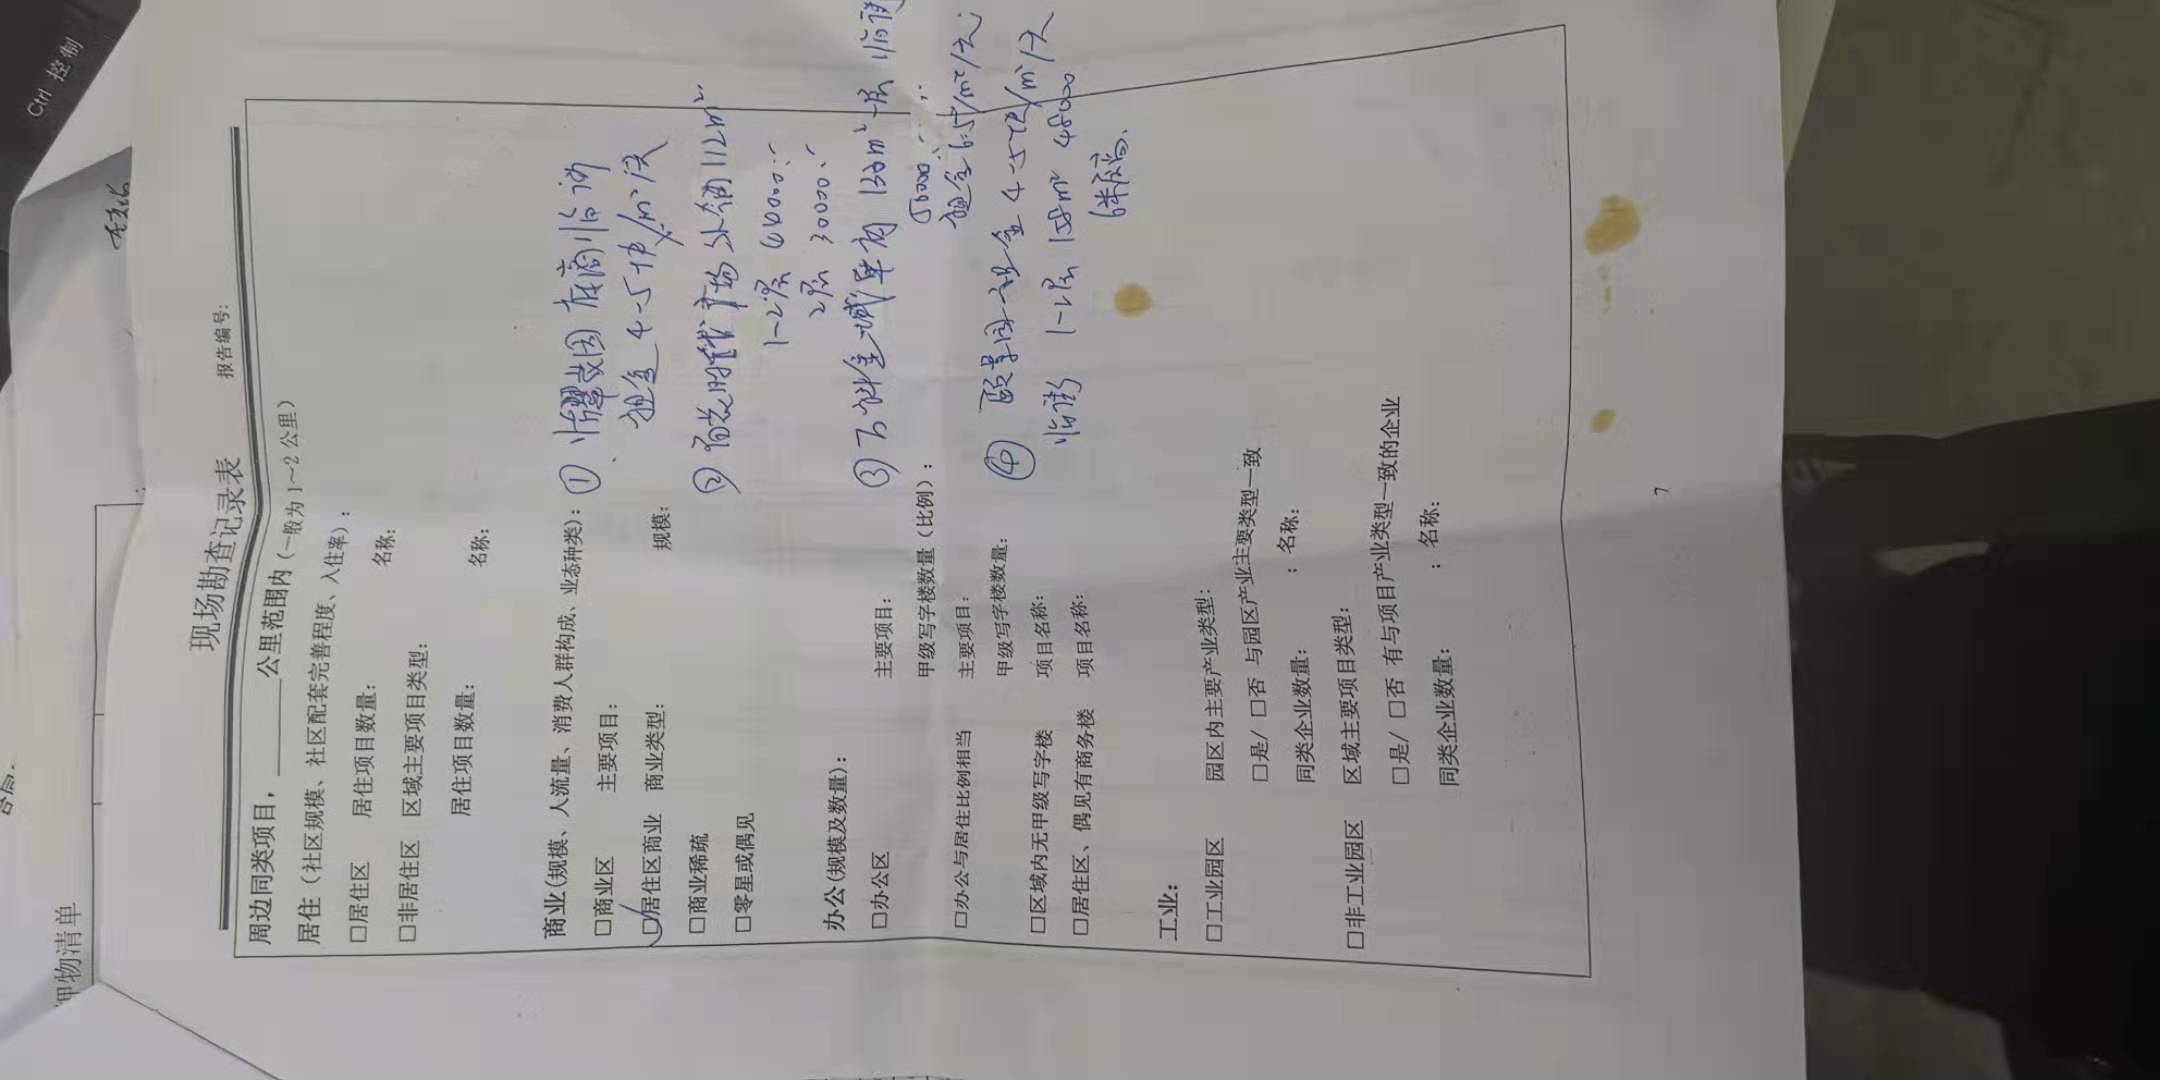 Ctrl 控制
押物清单
现场勘查记录表
报告编号:
周边同类项目,______公里范围内(一般为1~2公里)
居住(社区规模、社区配套完善程度、入住率):
□居住区 居住项目数量: 名称:
□非居住区 区域主要项目类型:
居住项目数量: 名称:
商业(规模、人流量、消费人群构成、业态种类):
① 底商临街
□商业区 主要项目:
租金 4-5元/m²/天
□居住区商业 商业类型: 规模:
□商业稀疏
② 时代广场 外铺 112m²
□零星或偶见
1-2层
2层 30000.
办公(规模及数量):
③ 万科金域 单价 130m² 一层 临街
□办公区 主要项目:
50000
甲级写字楼数量(比例):
租金 6.5元/m²/天
□办公与居住比例相当 主要项目:
甲级写字楼数量:
④ 颐景园 租金 4-5元/m²/天
□区域内无甲级写字楼 项目名称:
临街 1-2层 158m² 48000
□居住区、偶见有商务楼 项目名称:
6米层高.
工业:
□工业园区 园区内主要产业类型:
□是/□否 与园区产业主要类型一致
同类企业数量: : 名称:
□非工业园区 区域主要项目类型:
□是/□否 有与项目产业类型一致的企业
同类企业数量: : 名称:
7